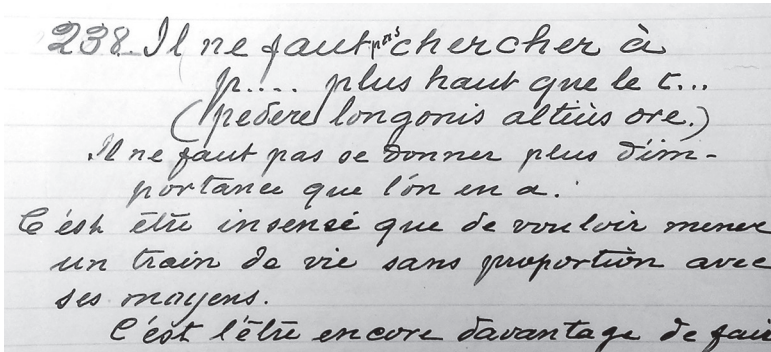 238. Il ne faut pas chercher à
p.... plus haut que le c...
(pedere longonis altiùs ore.)
Il ne faut pas se donner plus d'im-
portance que l'on en a.
C'est être insensé que de vouloir mener
un train de vie sans proportion avec
ses moyens.
C'est l'être encore davantage de fair